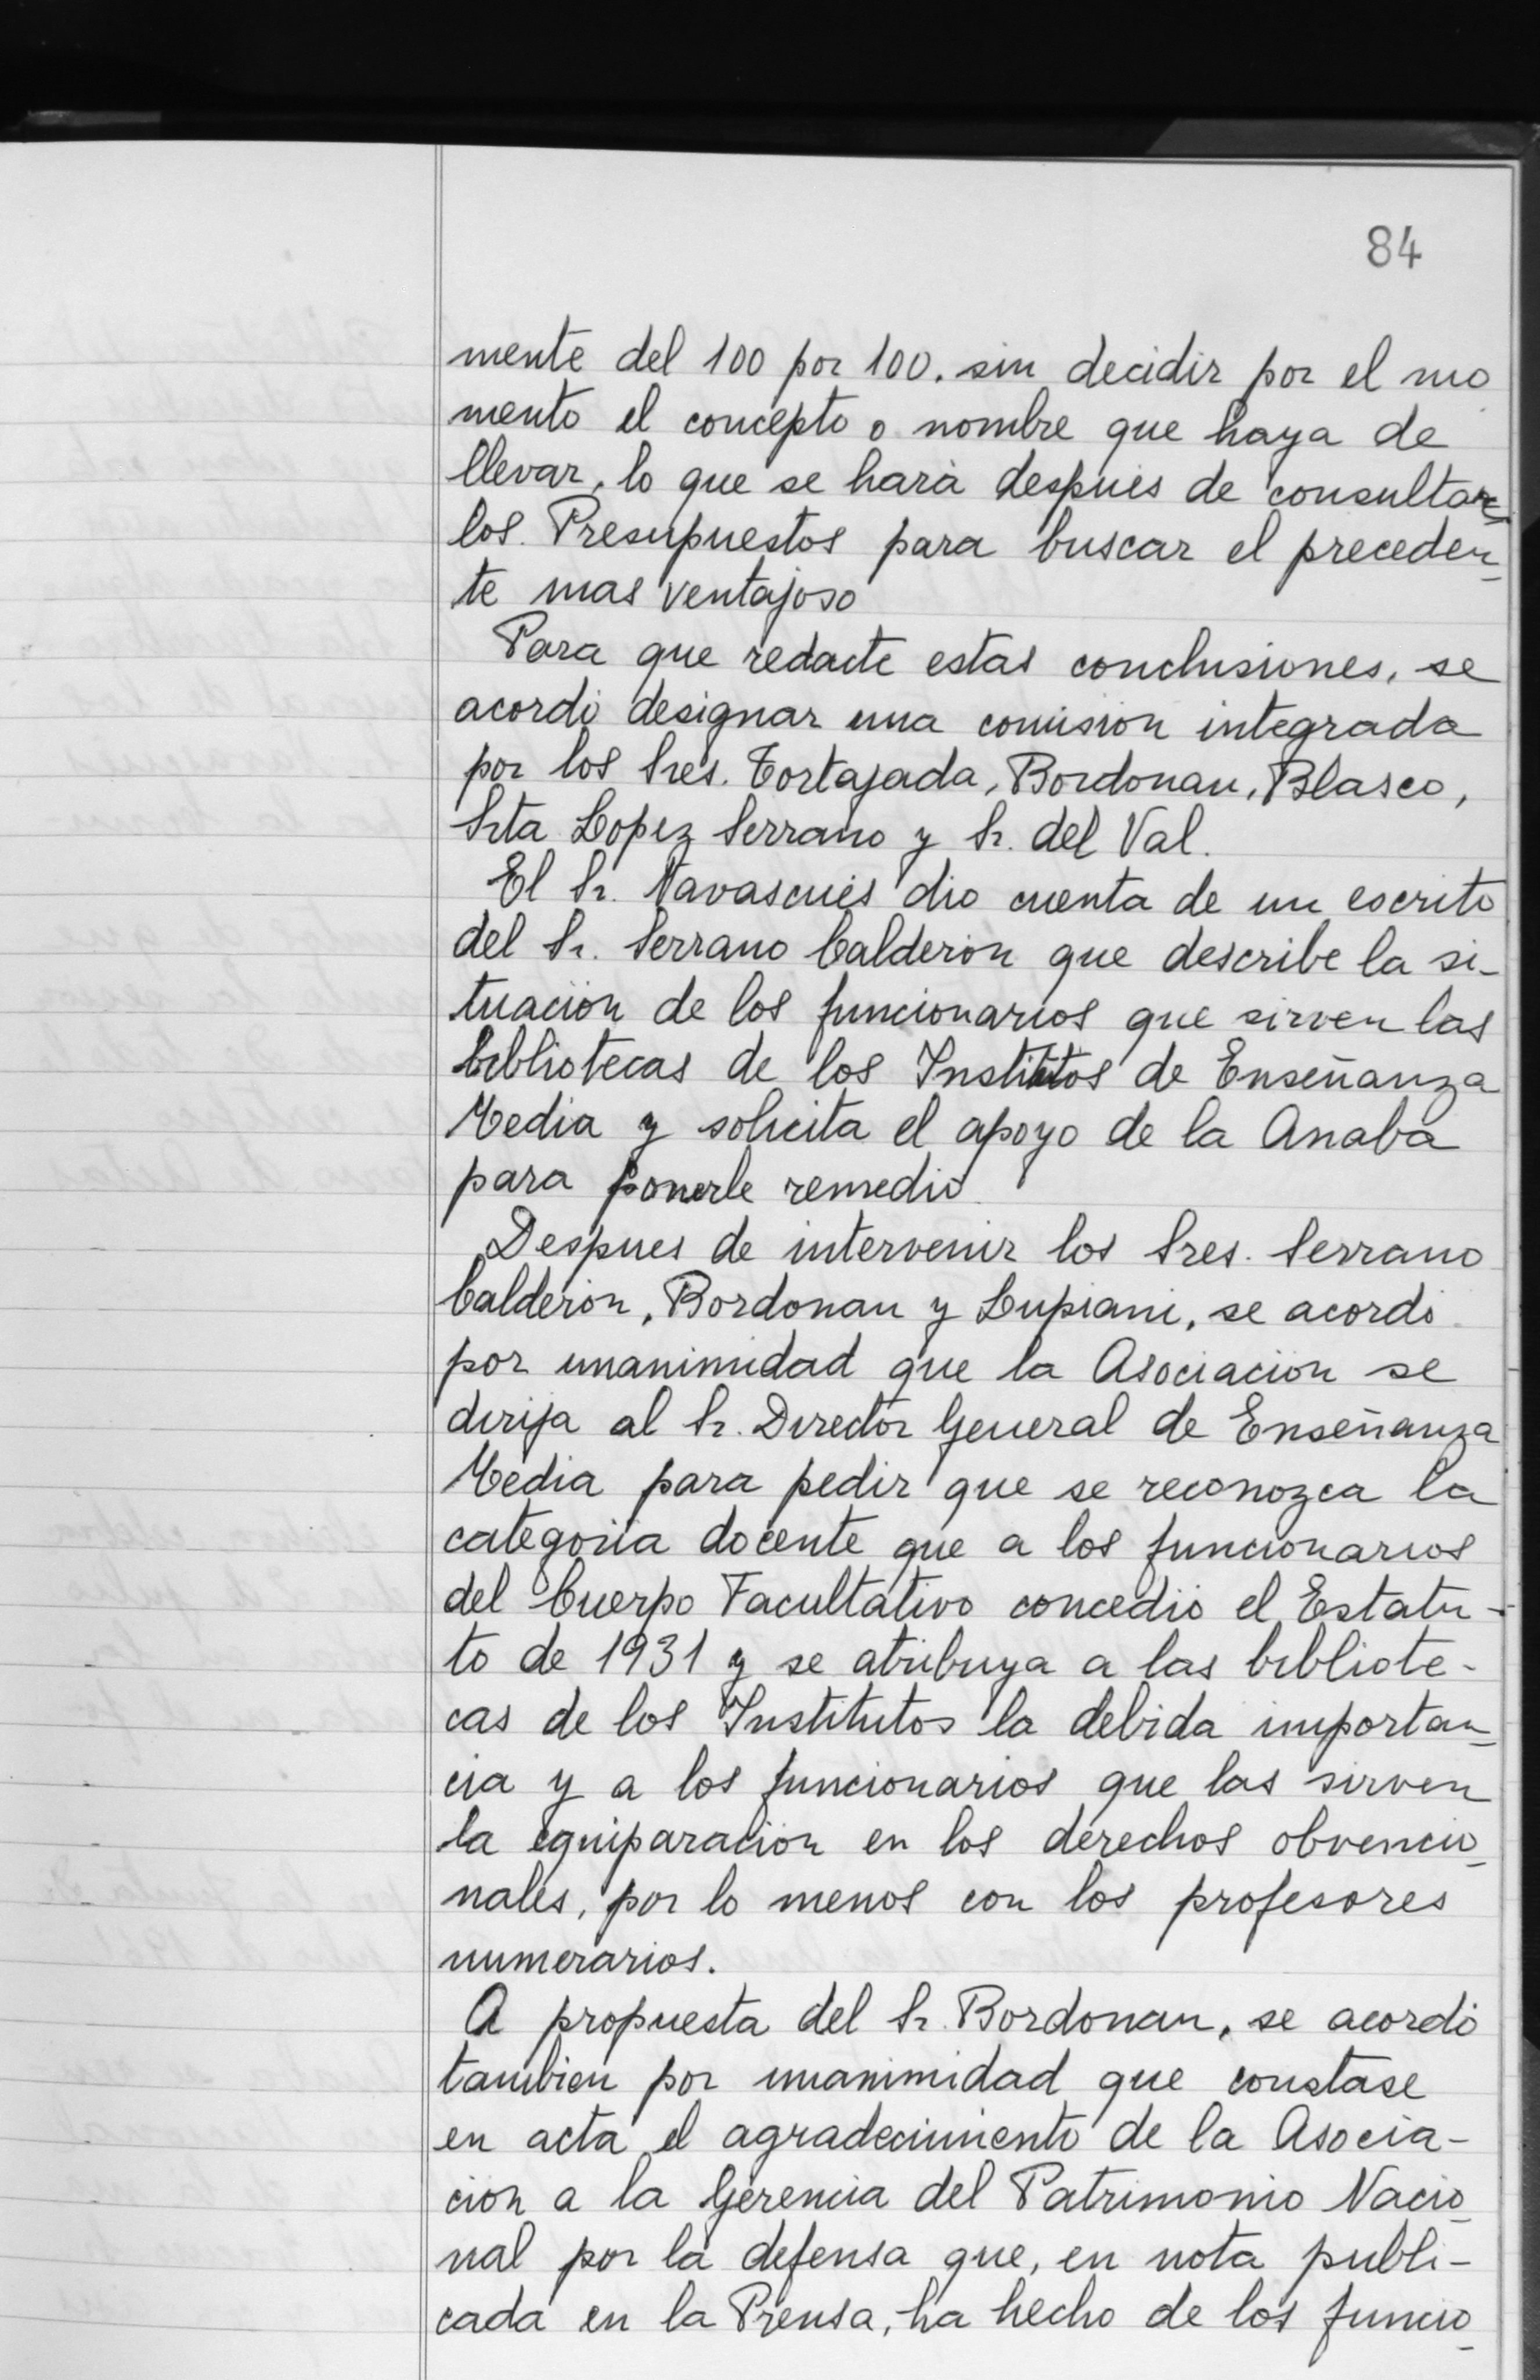 84
mente del 100 por 100. sin decidir por el mo
mento el concepto o nombre que haya de
llevar, lo que se hará después de consultar
los Presupuestos para buscar el preceden_
te mas ventajoso
Para que redacte estas conclusiones, se
acordó designar una comisión integrada
por los Sres. Tortajada, Bordonau, Blasco,
Srta Lopez Serrano y Sr. del Val.
El Sr. Navascués dio cuenta de un escrito
del Sr. Serrano Calderón que describe la si-
tuación de los funcionarios que sirven las
bibliotecas de los Institutos de Enseñanza
Media y solicita el apoyo de la Anaba
para ponerle remedio.
Despues de intervenir los Sres. Serrano
Calderón, Bordonau y Lupiani, se acordó
por unanimidad que la Asociación se
dirija al Sr. Director General de Enseñanza
Media para pedir que se reconozca la
categoría docente que a los funcionarios
del Cuerpo Facultativo concedió el Estatu-
to de 1931 y se atribuya a las bibliote-
cas de los Institutos la debida importan_
cia y a los funcionarios que las sirven
la equiparación en los derechos obvencio_
nales, por lo menos con los profesores
numerarios.
A propuesta del Sr. Bordonau, se acordó
tambien por unanimidad que constase
en acta el agradecimiento de la Asocia-
ción a la Gerencia del Patrimonio Nacio_
nal por la defensa que, en nota publi-
cada en la Prensa, ha hecho de los funcio_